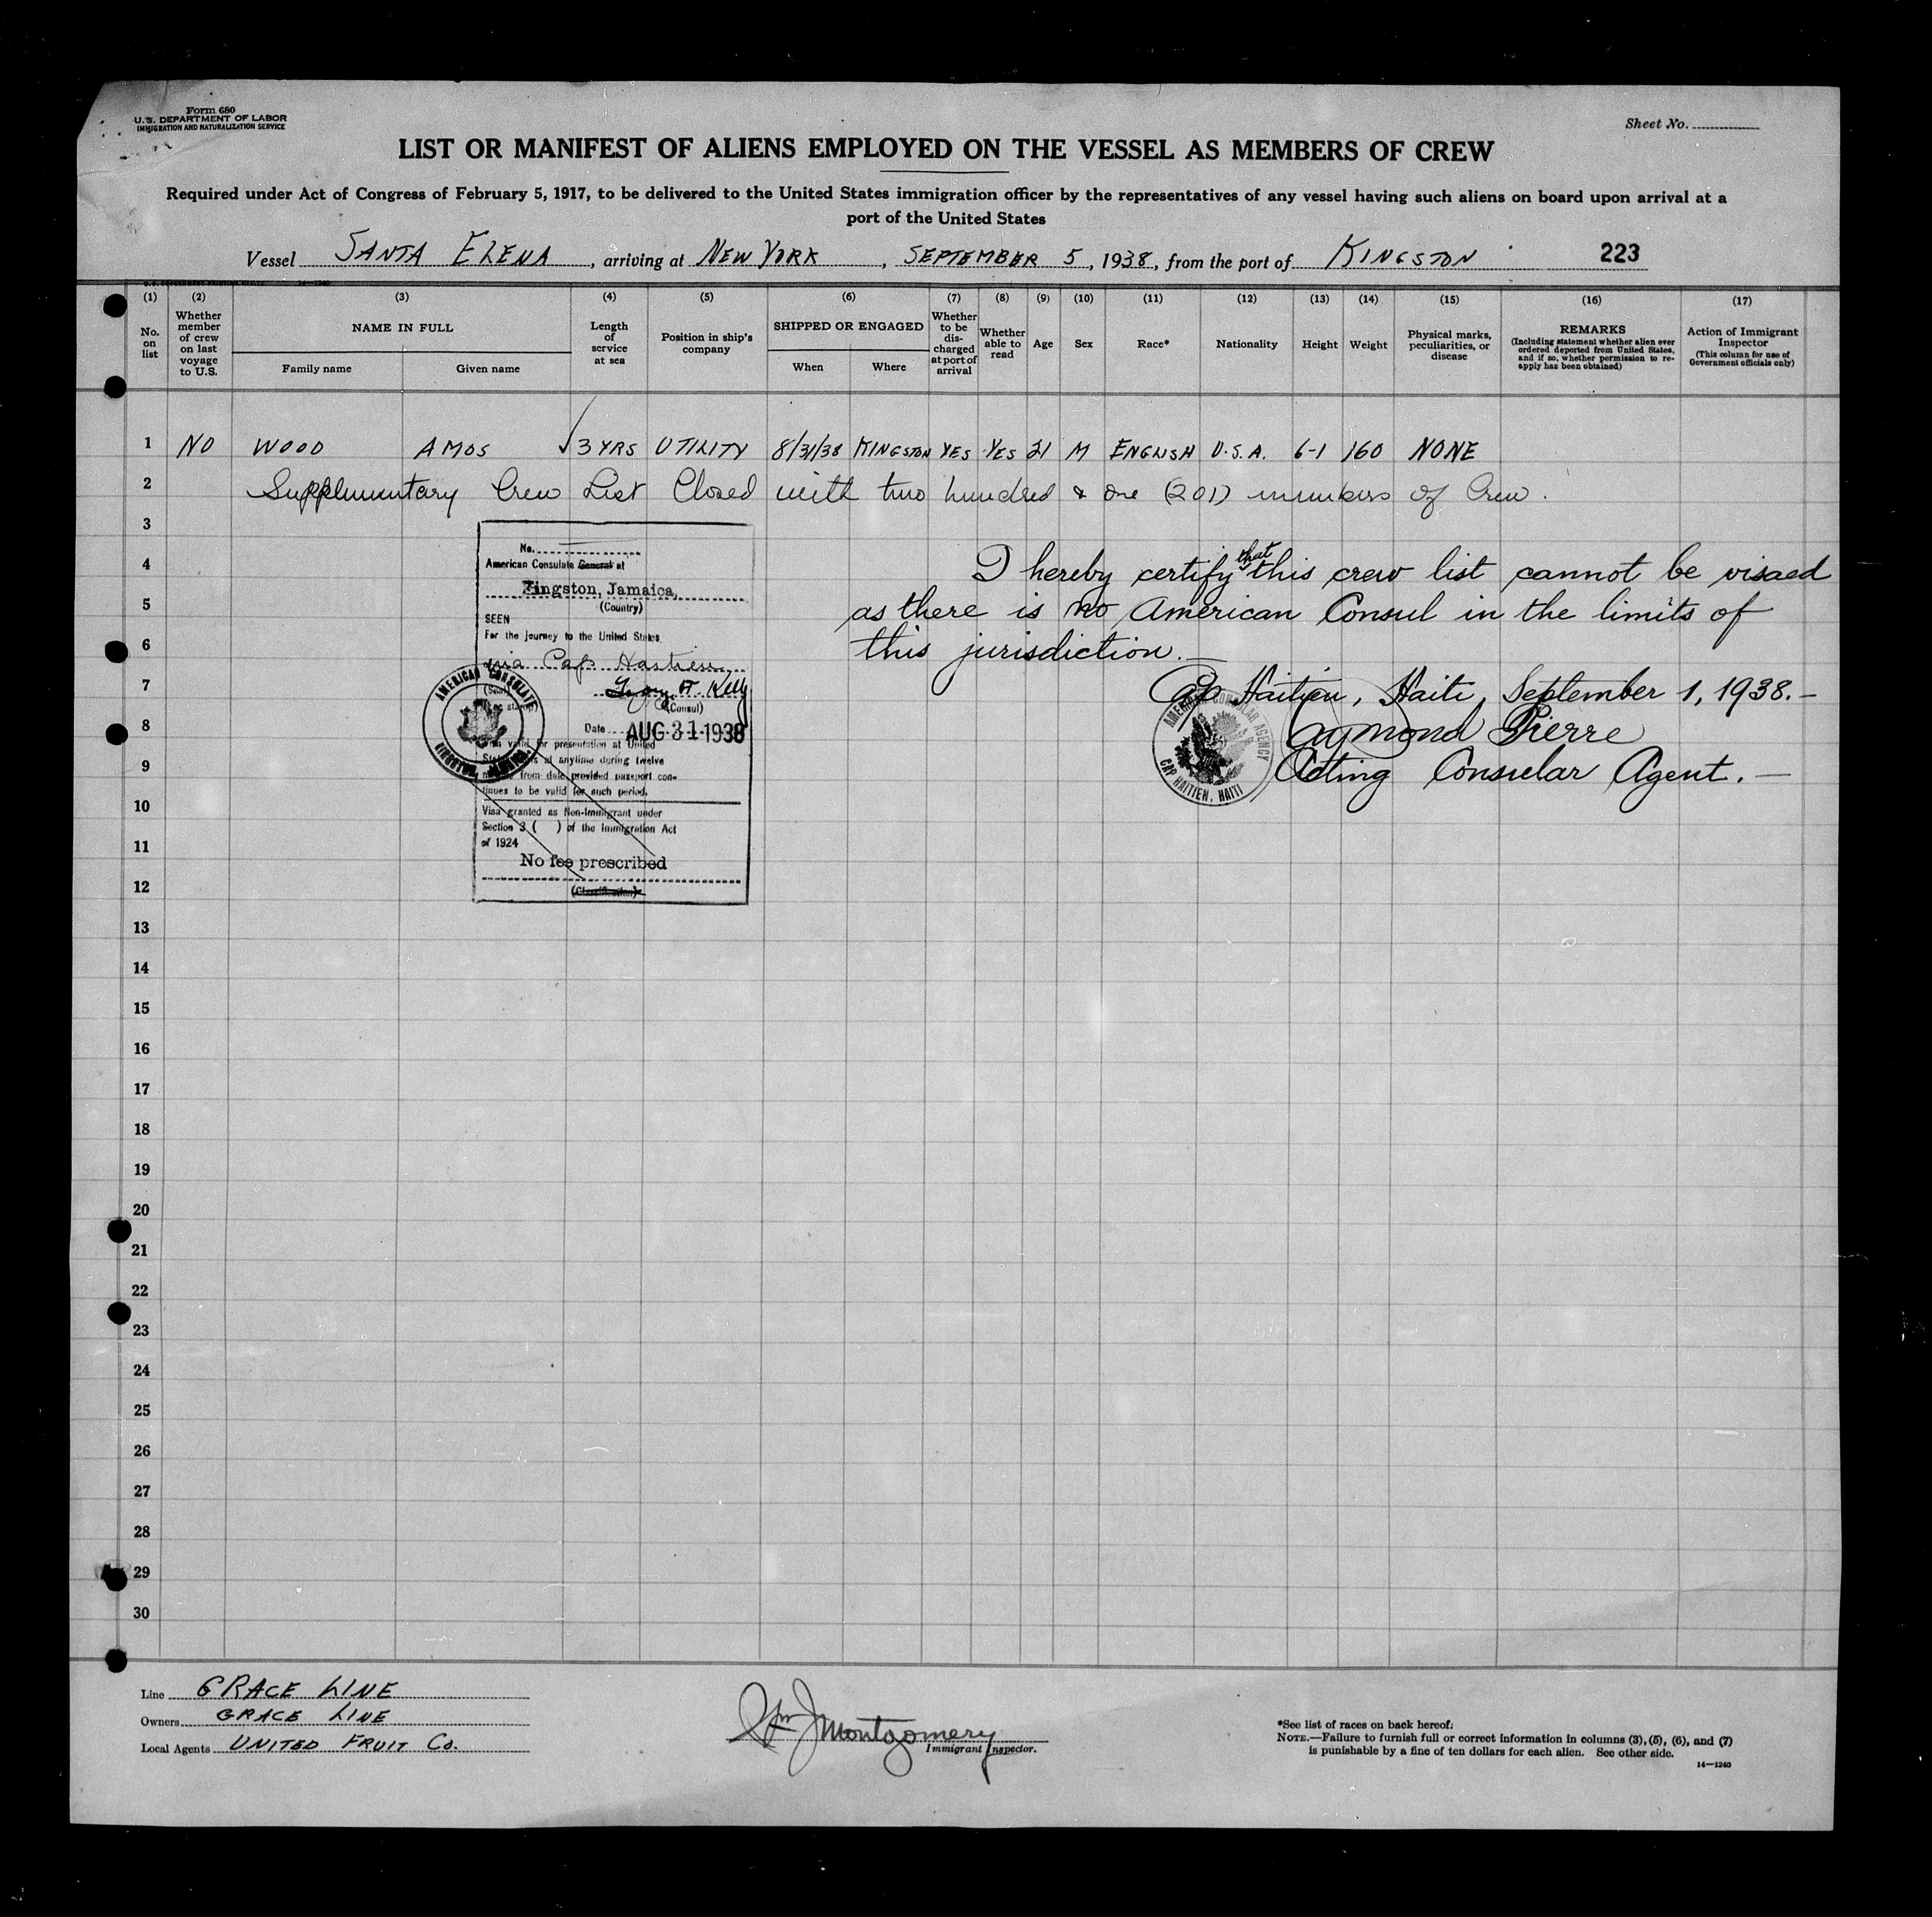 Form 680
U.S. DEPARTMENT OF LABOR
IMMIGRATION AND NATURALIZATION SERVICE
Sheet No.
LIST OR MANIFEST OF ALIENS EMPLOYED ON THE VESSEL AS MEMBERS OF CREW
Required under Act of Congress of February 5, 1917, to be delivered to the United States immigration officer by the representatives of any vessel having such aliens on board upon arrival at a
port of the United States
Vessel SANTA ELENA, arriving at NEW YORK, SEPTEMBER 5, 1938, from the port of KINGSTON 223
(1) (2) (3) (4) (5) (6) (7) (8) (9) (10) (11) (12) (13) (14) (15) (16) (17)
No. on list
Whether member of crew on last voyage to U.S.
NAME IN FULL
Family name Given name
Length of service at sea
Position in ship's company
SHIPPED OR ENGAGED
When Where
Whether to be discharged at port of arrival
Whether able to read
Age
Sex
Race*
Nationality
Height
Weight
Physical marks, peculiarities, or disease
REMARKS
(Including statement whether alien ever ordered deported from United States, and if so, whether permission to re-apply has been obtained)
Action of Immigrant Inspector
(This column for use of Government officials only)
1 NO WOOD AMOS √ 3 YRS UTILITY 8/31/38 KINGSTON YES YES 21 M ENGLISH U.S.A. 6-1 160 NONE
2 Supplementary Crew List Closed with two hundred & one (201) members of Crew.
3
4 I hereby certify that this crew list cannot be visaed
5 as there is no American Consul in the limits of
6 this jurisdiction.
7 Cap Haitien, Haiti, September 1, 1938.
8 Raymond Pierre
9 Acting Consular Agent.
AMERICAN CONSULAR AGENCY
CAP HAITIEN, HAITI
No.
American Consulate General at
Kingston, Jamaica,
(Country)
SEEN
For the journey to the United States
via Cap Haitien
(Seal)
Kelly
(Consul)
Date AUG 31 1938
AMERICAN CONSULATE
KINGSTON, JAMAICA
valid for presentation at United
at anytime during twelve
from date provided passport con-
tinues to be valid for such period.
Visa granted as Non-Immigrant under
Section 3 ( ) of the Immigration Act
of 1924
No fee prescribed
(Classification)
10
11
12
13
14
15
16
17
18
19
20
21
22
23
24
25
26
27
28
29
30
Line GRACE LINE
Owners GRACE LINE
Local Agents UNITED FRUIT CO.
Wm J Montgomery
Immigrant Inspector.
*See list of races on back hereof.
NOTE.—Failure to furnish full or correct information in columns (3), (5), (6), and (7)
is punishable by a fine of ten dollars for each alien. See other side.
14—1240